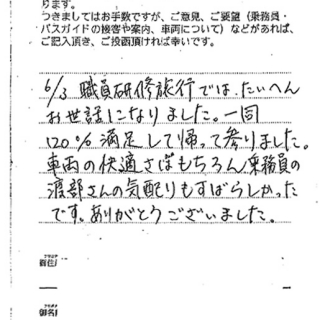 ります。
つきましてはお手数ですが、ご意見、ご要望（乗務員・
バスガイドの接客や案内、車両について）などがあれば、
ご記入頂き、ご投函頂ければ幸いです。
6/3 職員研修旅行では、たいへん
お世話になりました。一同
120%満足して帰って参りました。
車両の快適さはもちろん乗務員の
渡部さんの気配りもすばらしかった
です。ありがとうございました。
フリガナ
御住
フリガナ
御名